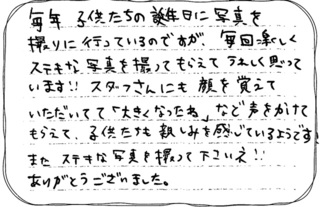 毎年 子供たちの誕生日に写真を
撮りに行っているのですが、毎回楽しく
ステキな写真を撮ってもらえてうれしく思って
います!! スタッフさんにも 顔を覚えて
いただいてて「大きくなったね」など声をかけて
もらえて、子供たちも親しみを感じているようです
また ステキな写真を撮って下さいネ!!
ありがとうございました。